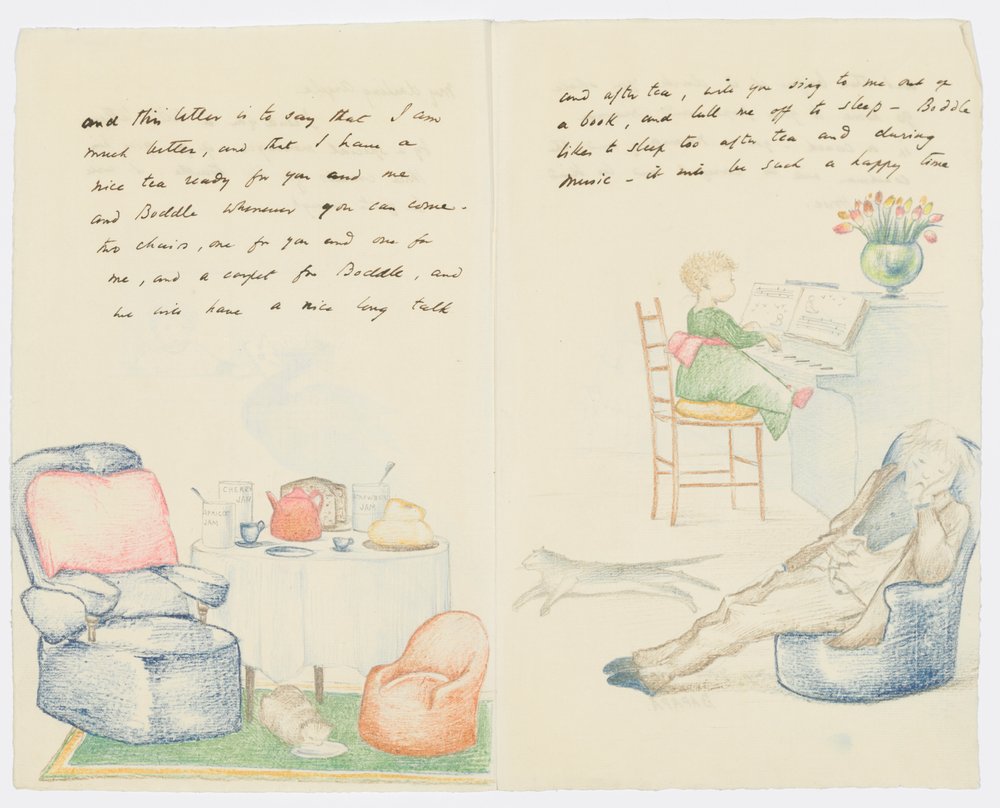 and this letter is to say that I am
much better, and that I have a
nice tea ready for you and me
and Boddle whenever you can come -
two chairs, one for you and one for
me, and a carpet for Boddle, and
we will have a nice long talk
CHERRY
JAM
APRICOT
JAM
STRAWBERRY
JAM
and after tea, will you sing to me out of
a book, and lull me off to sleep - Boddle
likes to sleep too after tea and during
music - it will be such a happy time